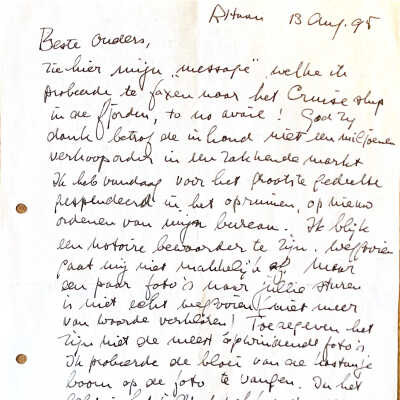 DHaan 13 Aug. 95
Beste ouders,
zie hier mijn "message" welke ik
probeerde te faxen naar het Cruise ship
in de fjorden, to no avail! God zij
dank betrof de inhoud niet een miljoenen
verkooporder in een zakkende markt
Ik heb vandaag voor het grootste gedeelte
gespendeerd in het opruimen, op nieuw
ordenen van mijn bureau.. Ik blijk
een notoire bewaarder te zijn. wegdoen
gaat mij niet makkelijk af maar
een paar foto's naar jullie sturen
is niet echt wegdoen (niet meer
van woorde verklären! Toegegeven het
zijn niet de meest opwindende foto's
Ik probeerde de bloei van de kastanje
boom op de foto te vangen. In het